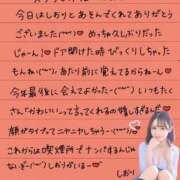 今日はしおりとあそんでくれてありがとう
ございました(˘︶˘)♥ めっちゃくしおりだった
じゃーん!ドア開けた時びっくりしちゃった
もんね(˘︶˘) あたり前に覚えてるからねー♥
今年最後に会えてよかったー(˘︶˘) いつもたく
さん"かわいい"って言ってくれるの嬉しすぎるんだ♥
顔がタイプってニヤニヤしちゃうー(˘︶˘)♥
これからは喫煙所でナンパするんじゃ
ないぞー(˘︶˘) しおりがいるー♥
しおり